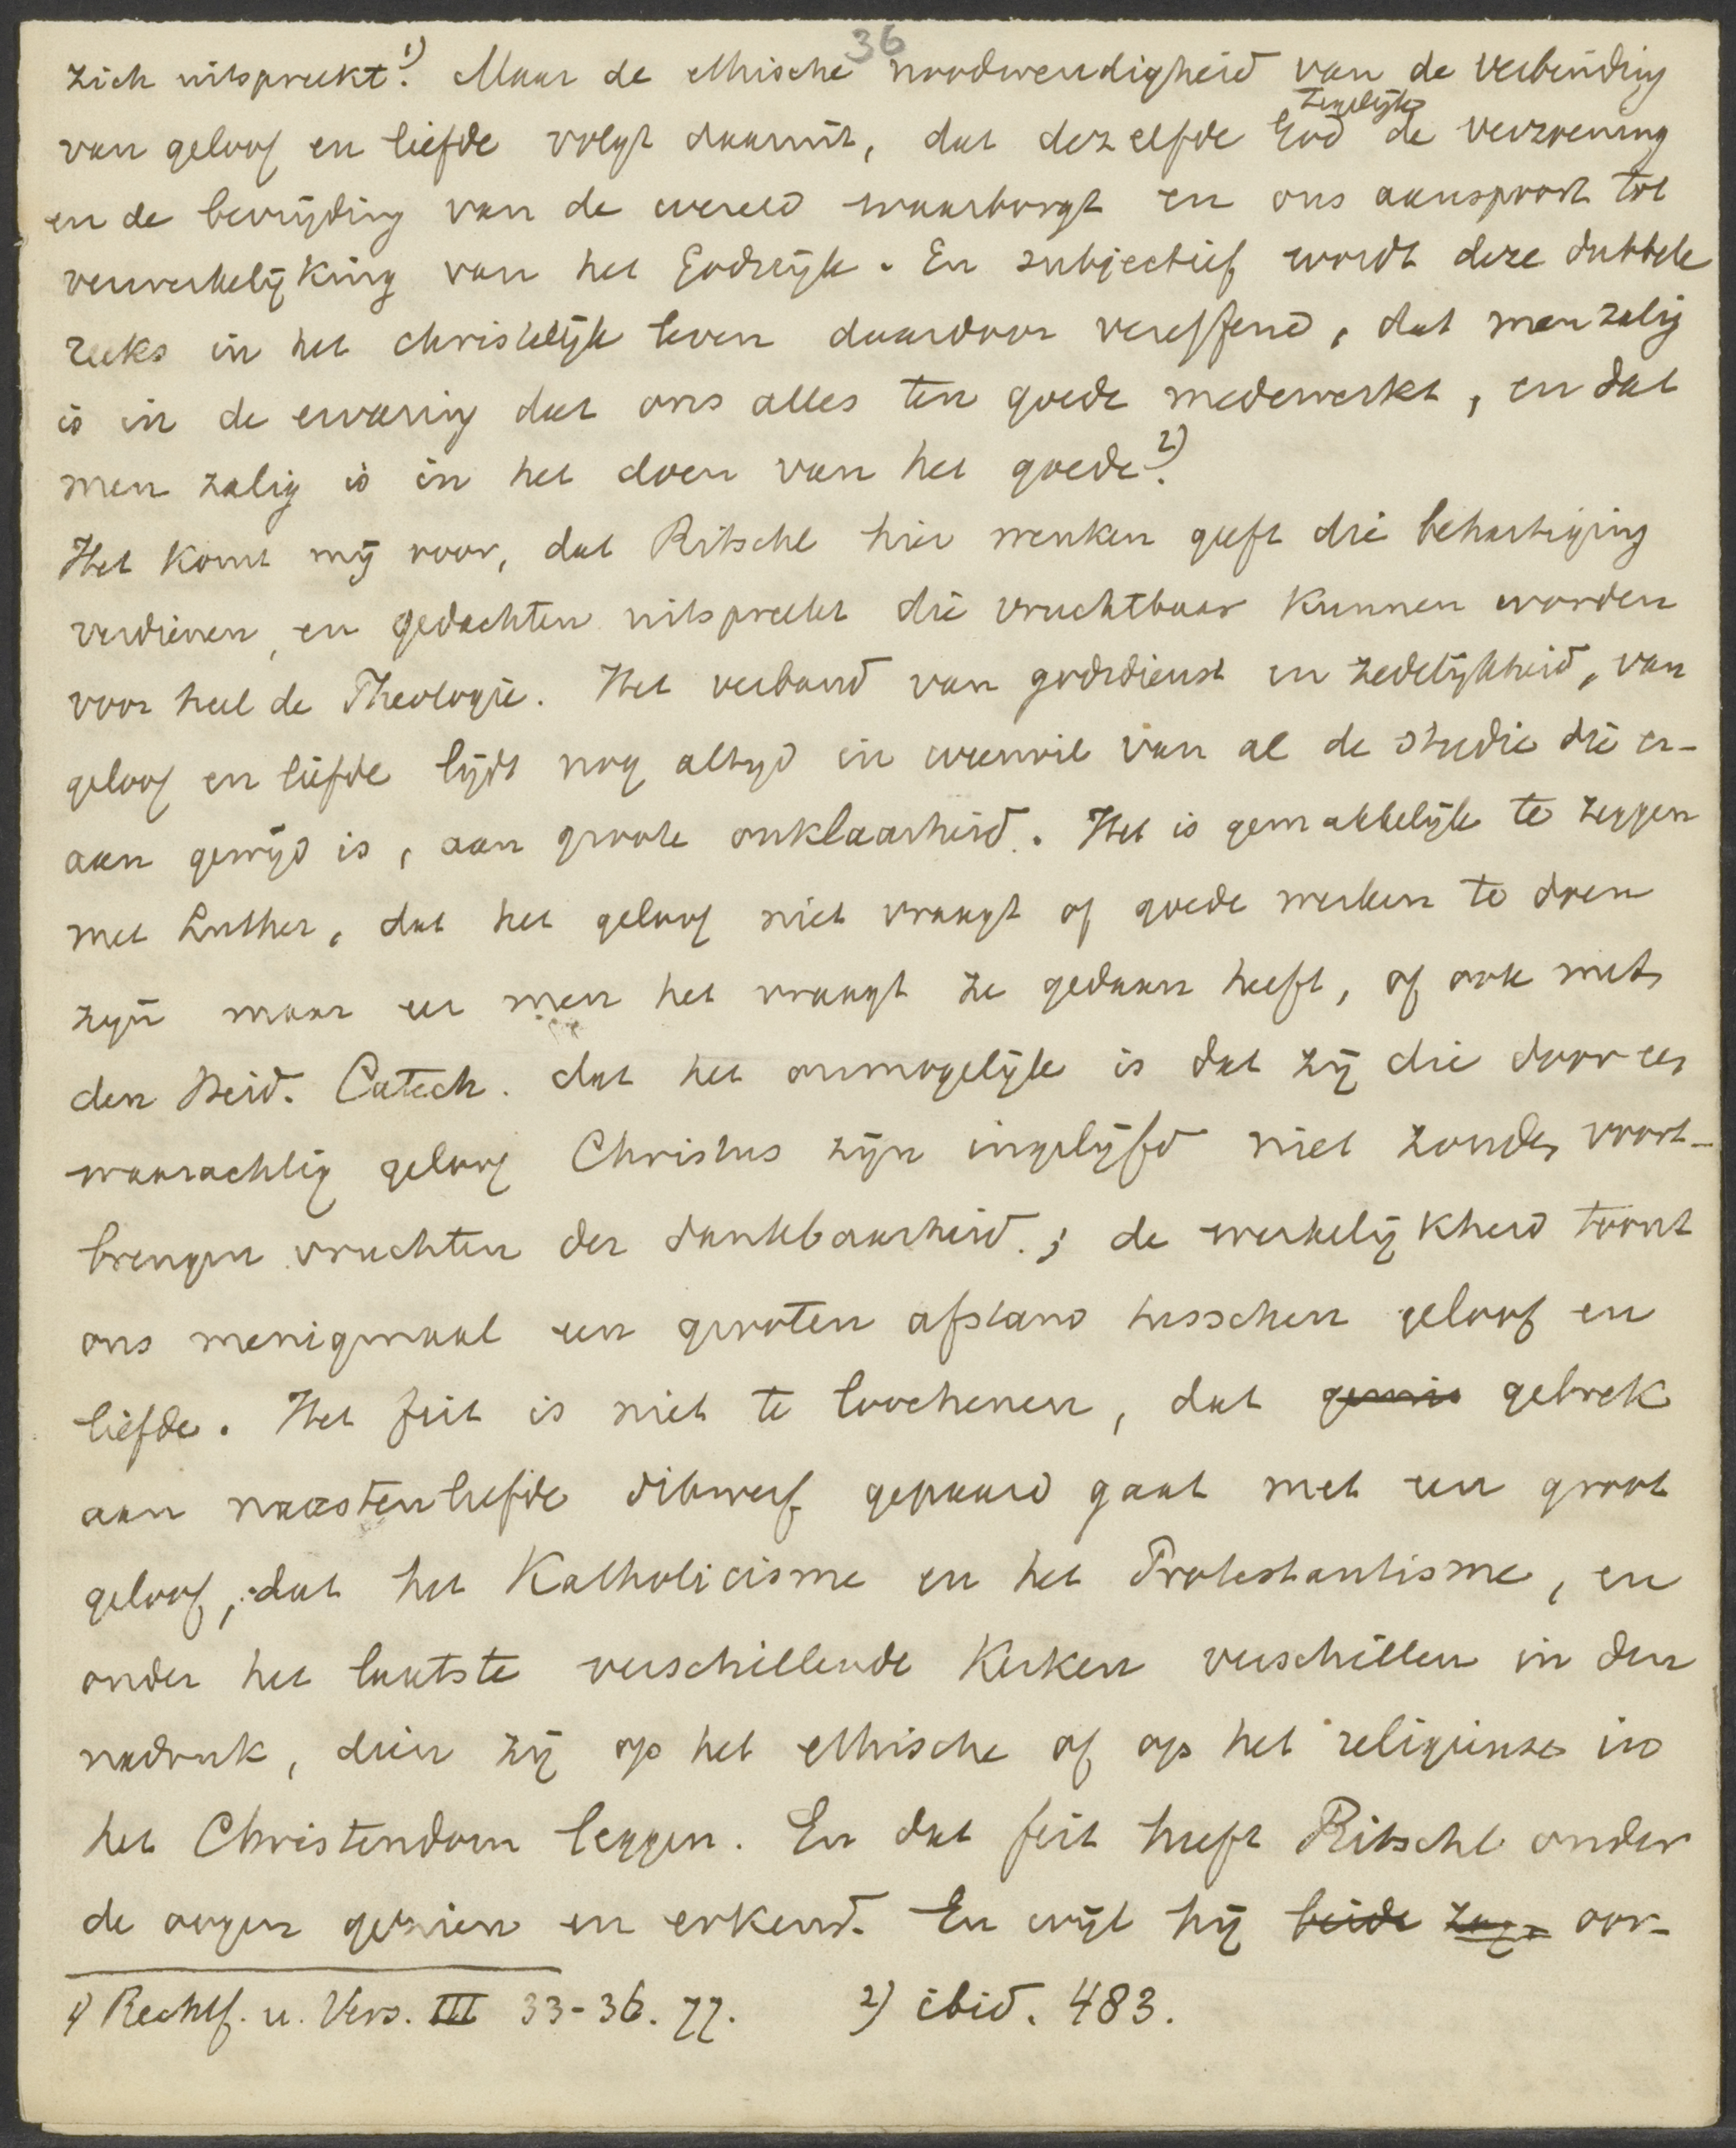 36
zich uitspreekt.1) Maar de ethische noodwendigheid van de verbinding
van geloof en liefde volgt daaruit, dat dezelfde God tegelijk de verzoening
en de bevrijding van de wereld waarborgt en ons aanspoort tot
verwerkelijking van het Godsrijk. En subjectief wordt deze dubbele
reeks in het christelijk leven daardoor vereffend, dat men zalig
is in de ervaring dat ons alles ten goede medewerkt, en dat
men zalig is in het doen van het goede.2)
Het komt mij voor, dat Ritschl hier wenken geeft die behartiging
verdienen, en gedachten uitspreekt die vruchtbaar kunnen worden
voor heel de Theologie. Het verband van godsdienst en zedelijkheid, van
geloof en liefde lijdt nog altijd in weerwil van al de studie die er-
aan gewijd is, aan groote onklaarheid. Het is gemakkelijk te zeggen
met Luther, dat het geloof niet vraagt of goede werken te doen
zijn maar eer men het vraagt ze gedaan heeft, of ook met
den Heid. Catech. dat het onmogelijk is dat zij die door een
waarachtig geloof Christus zijn ingelijfd niet zouden voort-
brengen vruchten der dankbaarheid.; de werkelijkheid toont
ons menigmaal een grooten afstand tusschen geloof en
liefde. Het feit is niet te loochenen, dat gemis gebrek
aan naastenliefde dikwerf gepaard gaat met een groot
geloof, dat het Katholicisme en het Protestantisme, en
onder het laatste verschillende Kerken verschillen in den
nadruk, dien zij op het ethische of op het religieuse in
het Christendom leggen. En dat feit heeft Ritschl onder
de oogen gezien en erkend. En wijl hij beide zag oor-
1) Rechtf. u. Vers. III 33-36. 77. 2) ibid. 483.